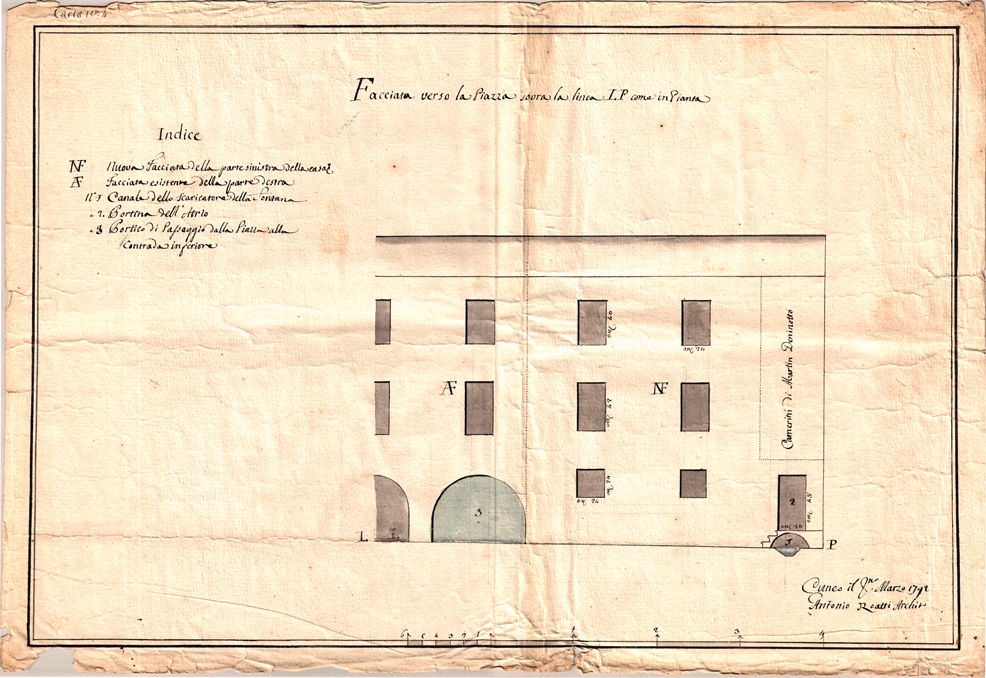 Carta N.° 4
Facciata verso la Piazza sovra la linea L.P come in Pianta
Indice
NF Nuova Facciata della parte sinistra della casa
AF Facciata esistente della parte destra
N.° 1 Canale dello scaricatore della Fontana
2. Portina dell'Atrio
3 Portico di Passaggio dalla Piazza alla
Contrada inferiore
AF
NF
Camerini di Martin Doninetto
2
3
L
P
Cuneo il Marzo 1792
Antonio Roatti Archit
6 5 4 3 2 1
1 2 3 4